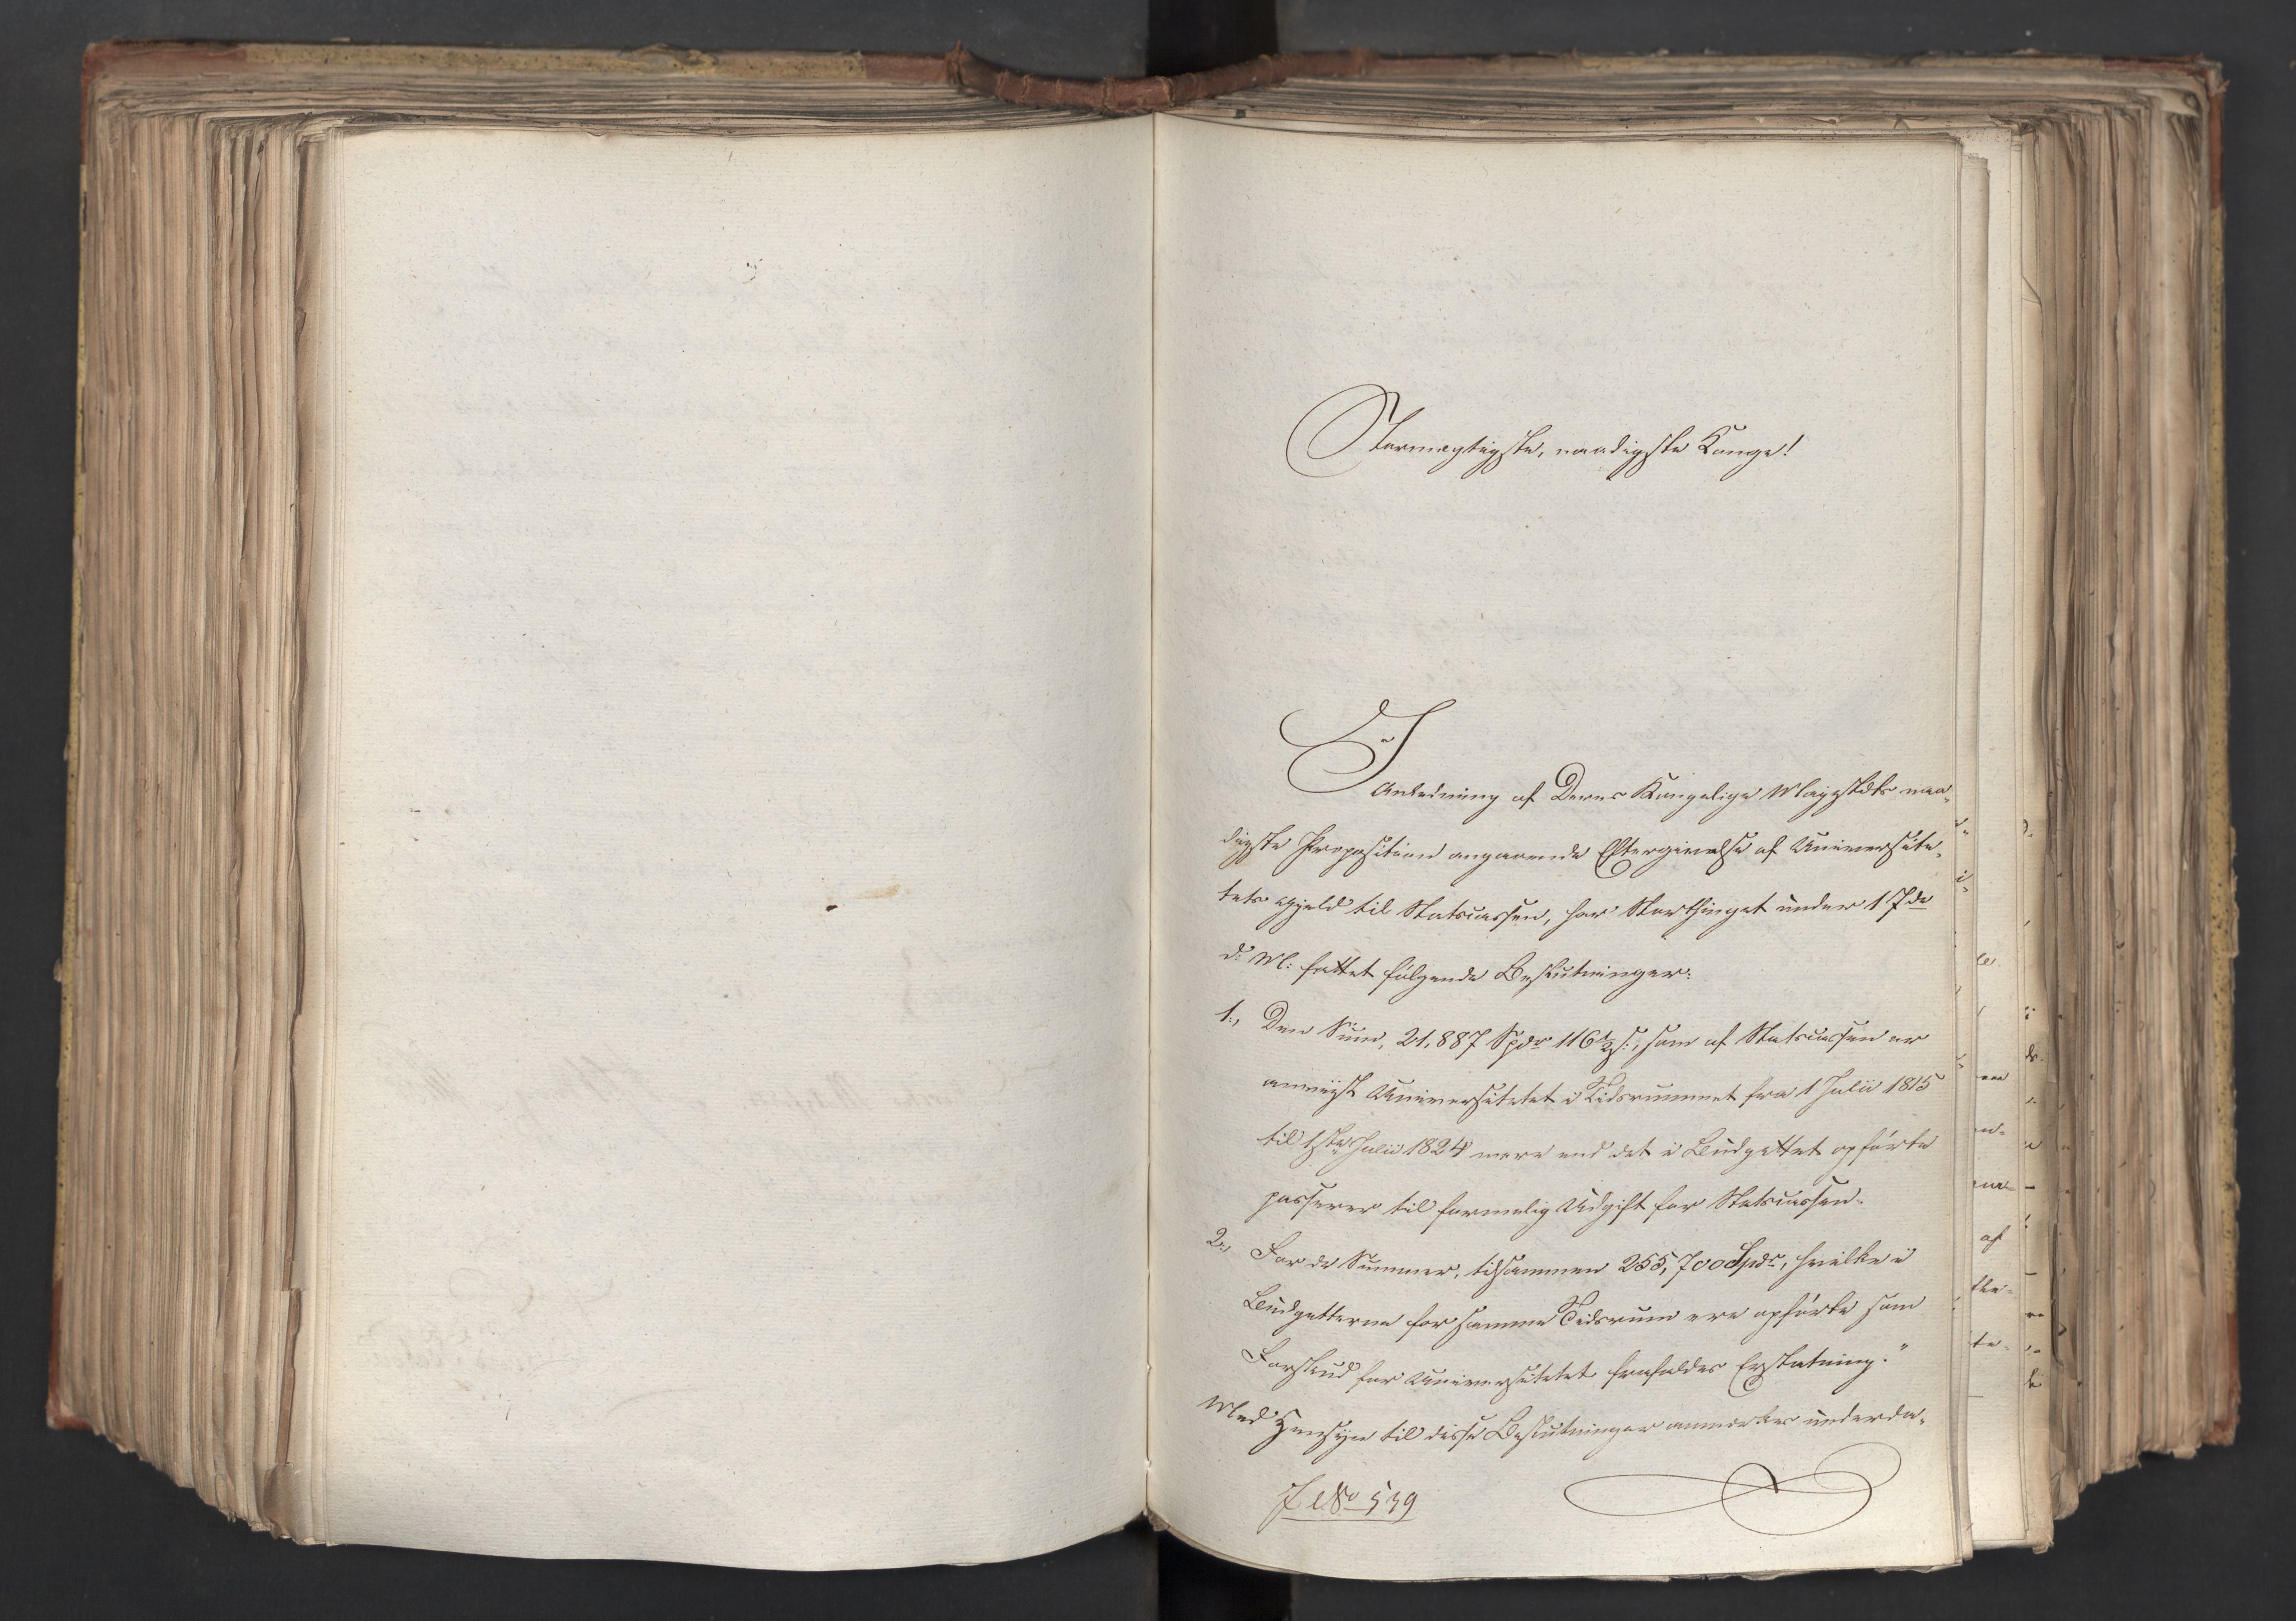 Stormægtigste, naadigste Konge!
I
Anledning af Deres Kongelige Majestæts naa-
digste Proposition angaaende Eftergivelse af Universite-
tets Gjeld til Statscassen, har Storthinget under 17de
d: M: fattet følgende Beslutninger:
1., Den Sum, 21,887 Spdr 116½ s:, som af Statscassen er
anviist Universitetet i Tidsrummet fra 1 Julii 1815
til 1ste Julii 1824 mere end det i Budgettet opførte
passerer til formelig Udgift for Statscassen.
2., For de Summer, tilsammen 255,700 Spdr, hvilke i
Budgetterne for samme Tidsrum ere opførte som
Forskud for Universitetet frafaldes Erstatning."
Med Hensyn til disse Beslutninger anmærkes underda-
No 539